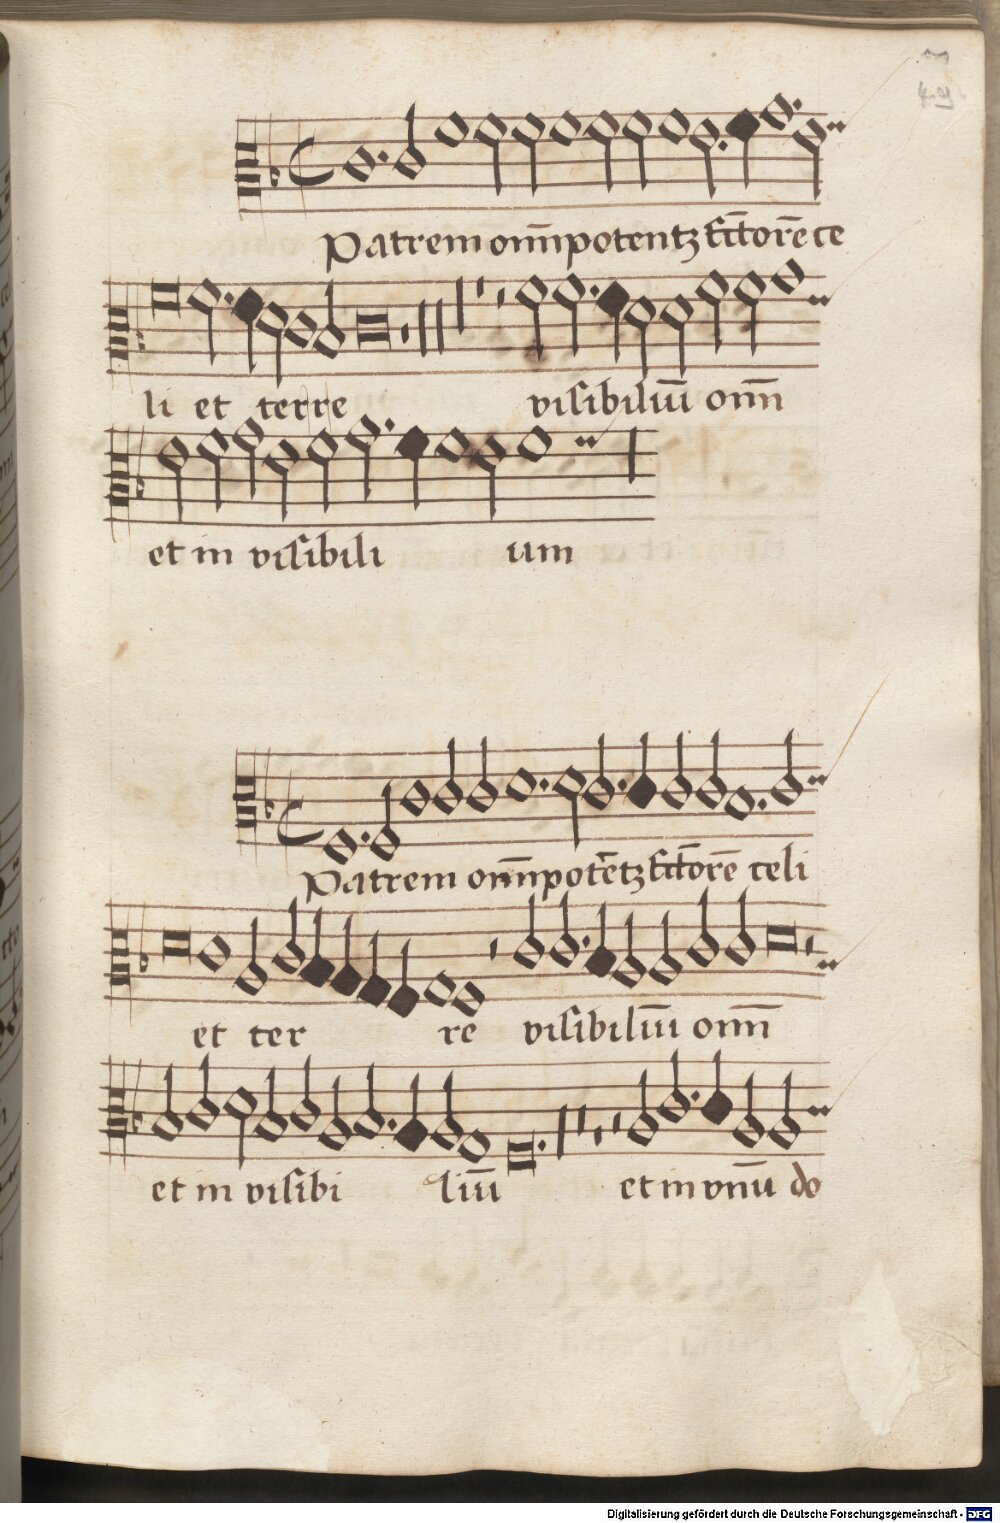 49
Patrem om̅potentz fc̅tore̅ ce
li et terre visibiliu̅ om̅
et in visibili um
Patrem om̅pote̅tz fc̅tore̅ celi
et ter re visibiliu̅ om̅
et in visibi liu̅ et in vnu̅ do
Digitalisierung gefördert durch die Deutsche Forschungsgemeinschaft - DFG